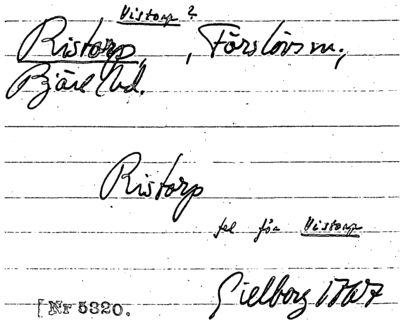 Vistorp?
Ristorp, Förslövs sn;
Bjäre hd.
Ristorp
fel för Vistorp
Gielborg 1767
[Nr 5320.